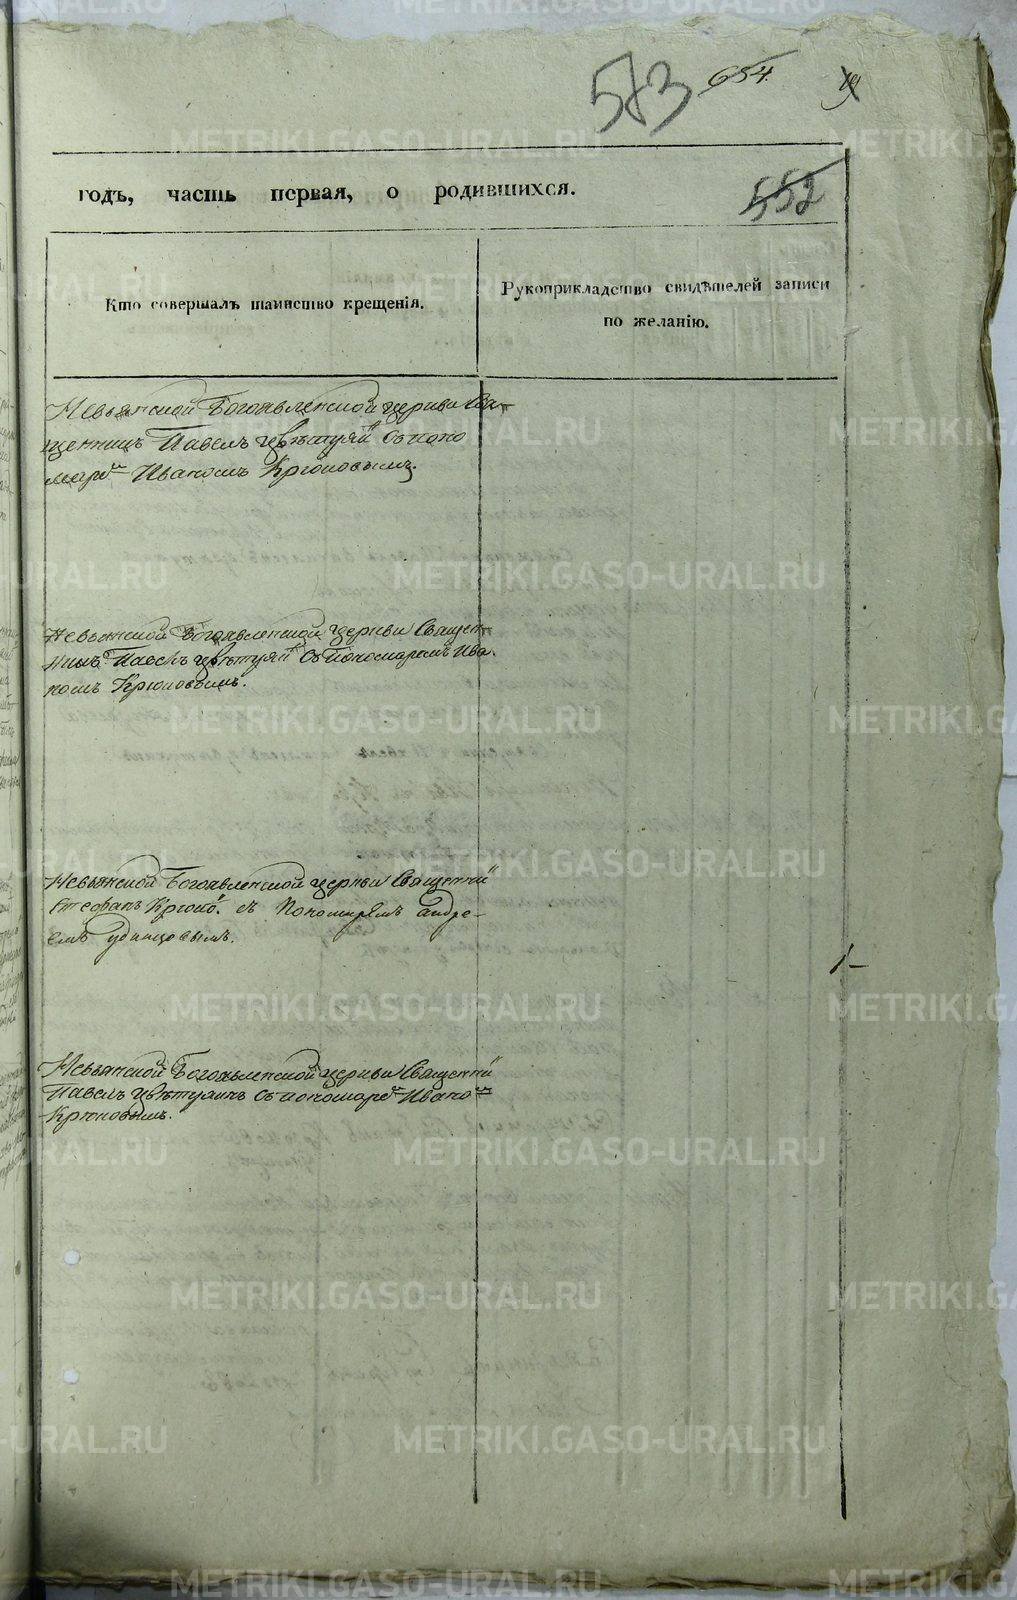 573 654.
годъ, часть первая, о родившихся.
552
Кто совершалъ таинство крещенія.
Рукоприкладство свидѣтелей записи
по желанію.
Невьянской Богоявленской церкви Свя-
щенникъ Павелъ Цвѣтухи съ поно
марем Иваномъ Крюковымъ.
Невьянской Богоявленской церкви Священ-
никъ Павелъ Цвѣтухи съ Пономаремъ Ива.
номъ Крюковымъ.
Невьянской Богоявленской церкви Священни
Стефанъ Крюко. съ Пономаремъ андре-
емъ удинцовымъ.
Невьянской Богоявленской церкви Священни
Павелъ Цвѣтухинъ съ пономарем Ивано
Крюковымъ.
METRIKI.GASO-URAL.RU